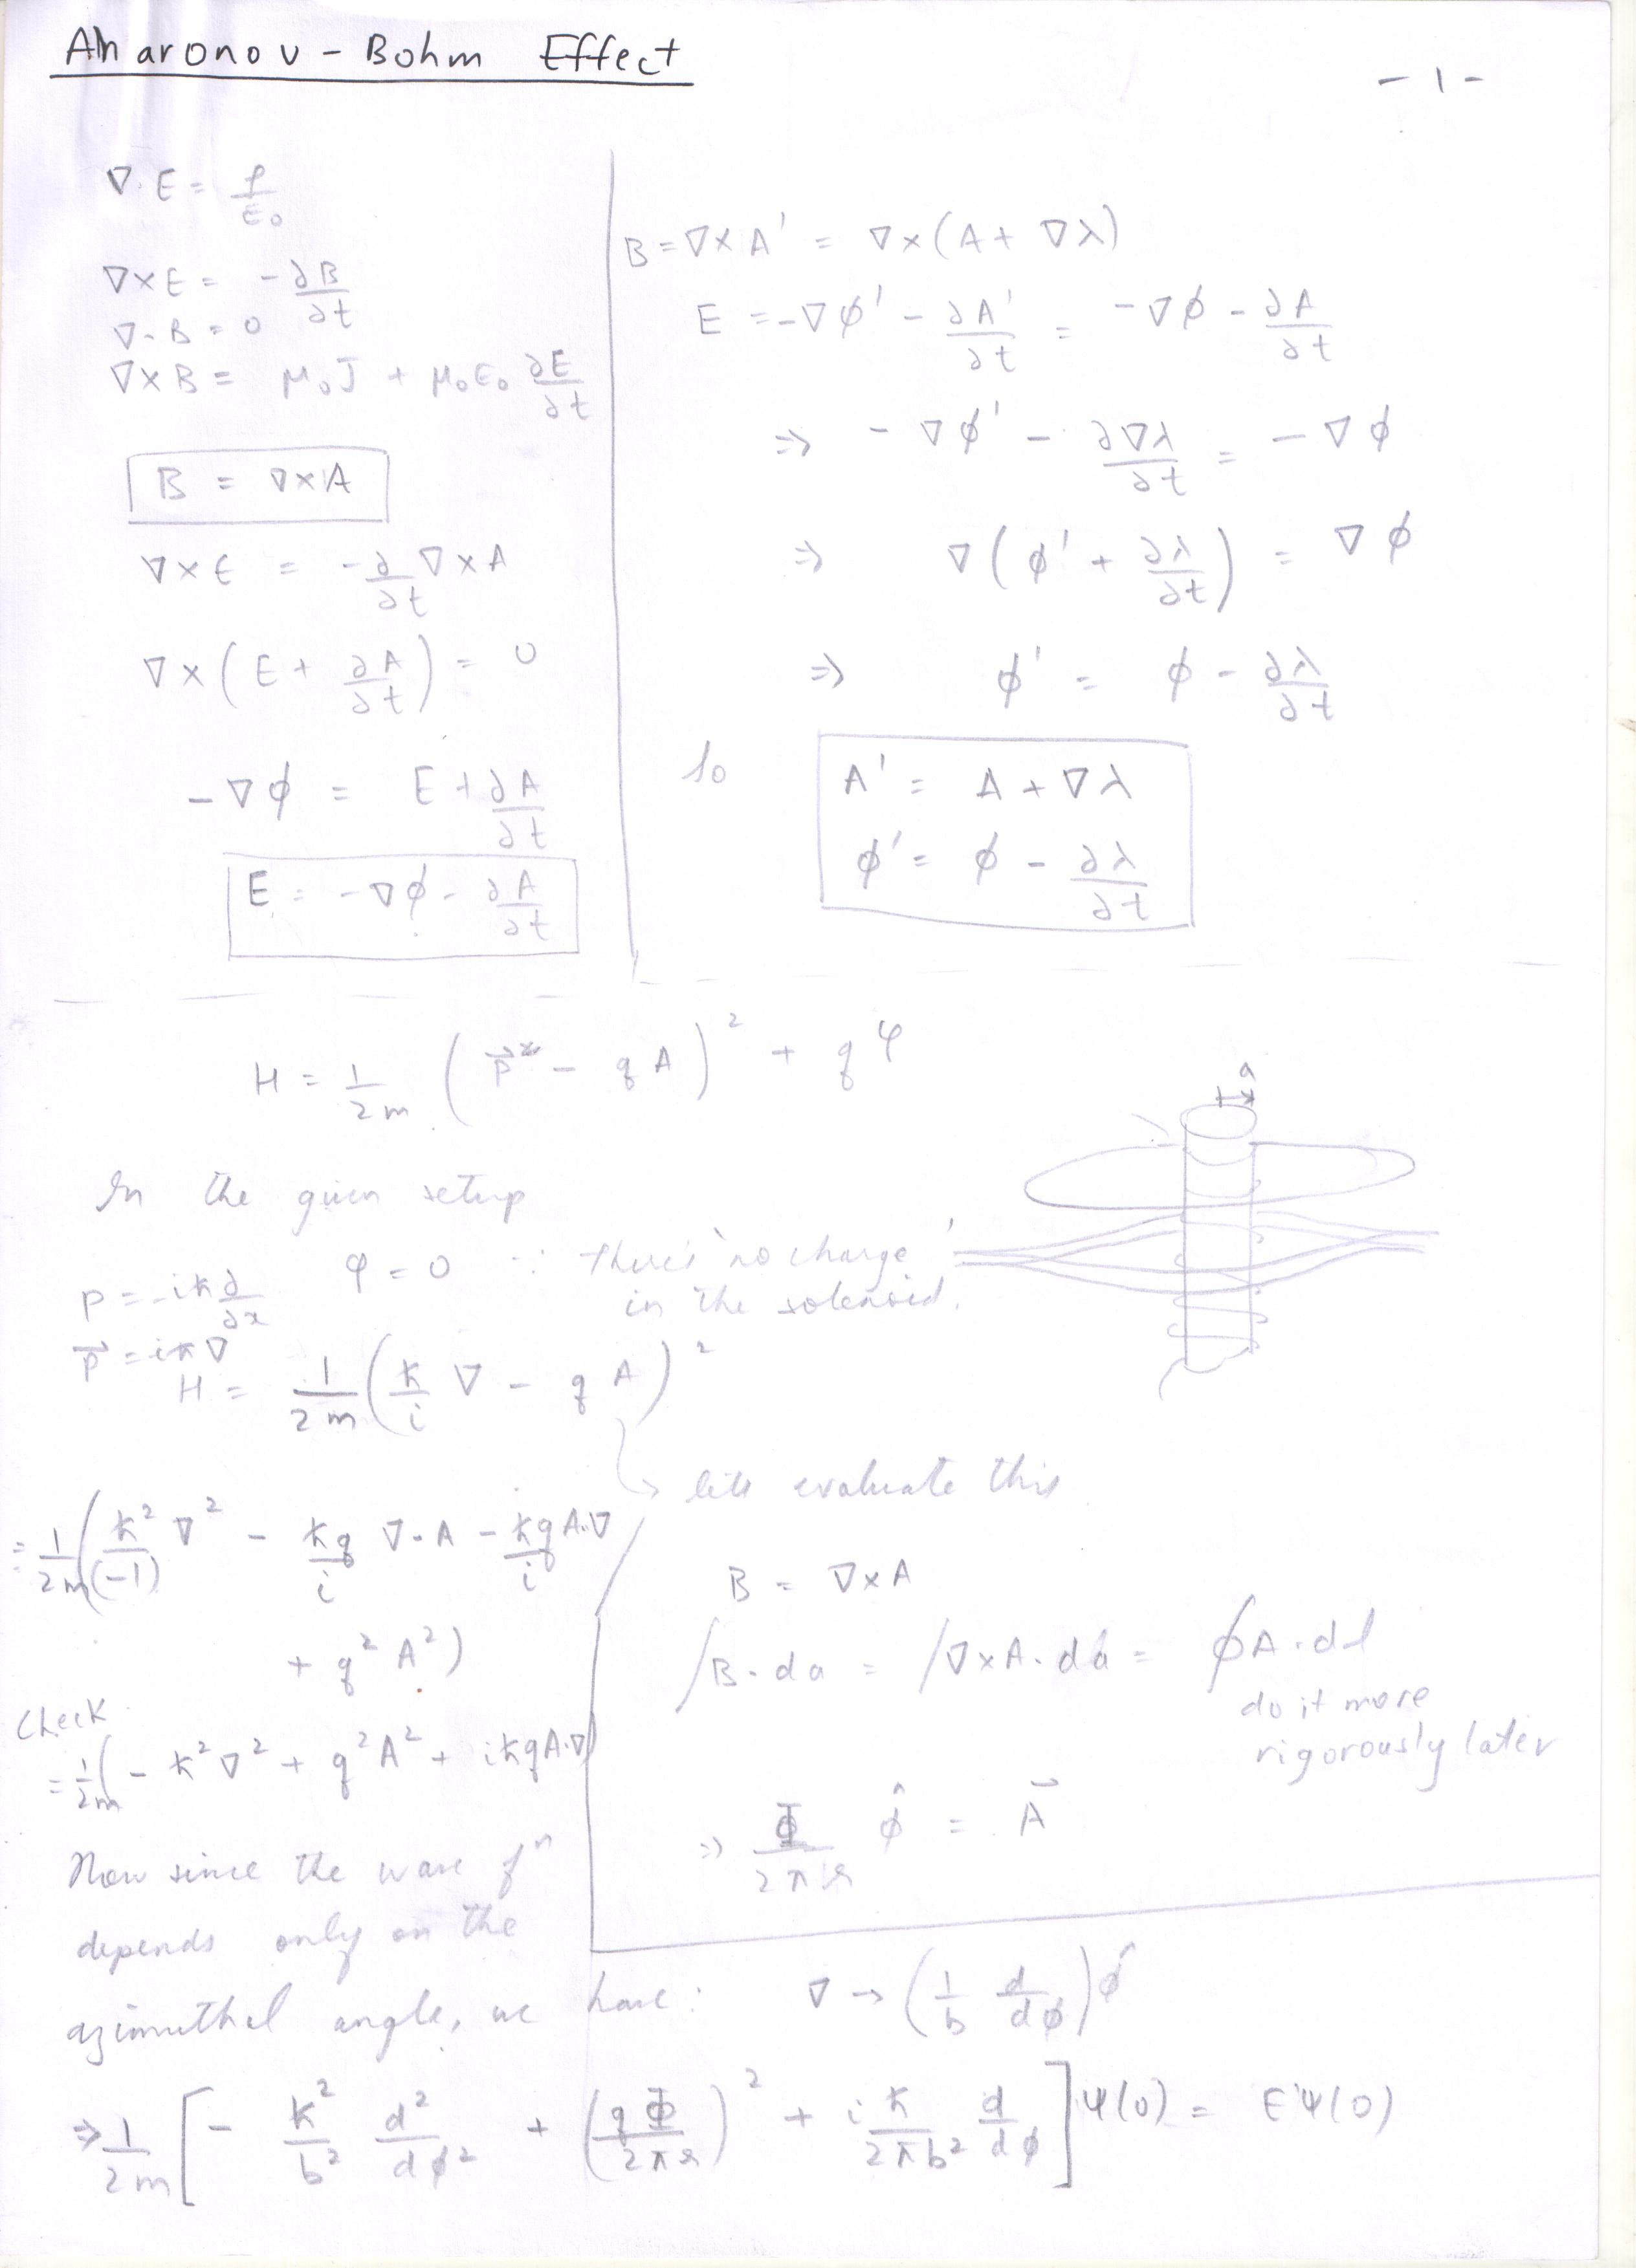 Aharonov - Bohm Effect
- 1 -
∇·E = ρ/ε₀
∇×E = -∂B/∂t
∇·B = 0
∇×B = μ₀J + μ₀ε₀ ∂E/∂t
B = ∇×A
∇×E = -∂/∂t ∇×A
∇×(E + ∂A/∂t) = 0
-∇ϕ = E + ∂A/∂t
E = -∇ϕ - ∂A/∂t
B = ∇×A' = ∇×(A + ∇λ)
E = -∇ϕ' - ∂A'/∂t = -∇ϕ - ∂A/∂t
⇒ -∇ϕ' - ∂∇λ/∂t = -∇ϕ
⇒ ∇(ϕ' + ∂λ/∂t) = ∇ϕ
⇒ ϕ' = ϕ - ∂λ/∂t
So
A' = A + ∇λ
ϕ' = ϕ - ∂λ/∂t
H = 1/2m (p⃗ - qA)² + qφ
a
In the given setup
φ = 0 ∵ there's no charge
in the solenoid.
p = -iħ ∂/∂x
p⃗ = iħ∇
H = 1/2m (ħ/i ∇ - qA)²
lets evaluate this
= 1/2m (ħ²/(-1) ∇² - ħq/i ∇·A - ħq/i A·∇
+ q²A²)
Check
= 1/2m (-ħ²∇² + q²A² + iħqA·∇)
B = ∇×A
∫B·da = ∫∇×A·da = ∮A·dl
do it more
rigorously later
⇒ Φ/2πr ϕ̂ = A⃗
Now since the wave fⁿ
depends only on the
azimuthal angle, we have: ∇ → (1/b d/dϕ) ϕ̂
⇒ 1/2m [-ħ²/b² d²/dϕ² + (qΦ/2πr)² + i ħ/2πb² d/dϕ] Ψ(0) = EΨ(0)